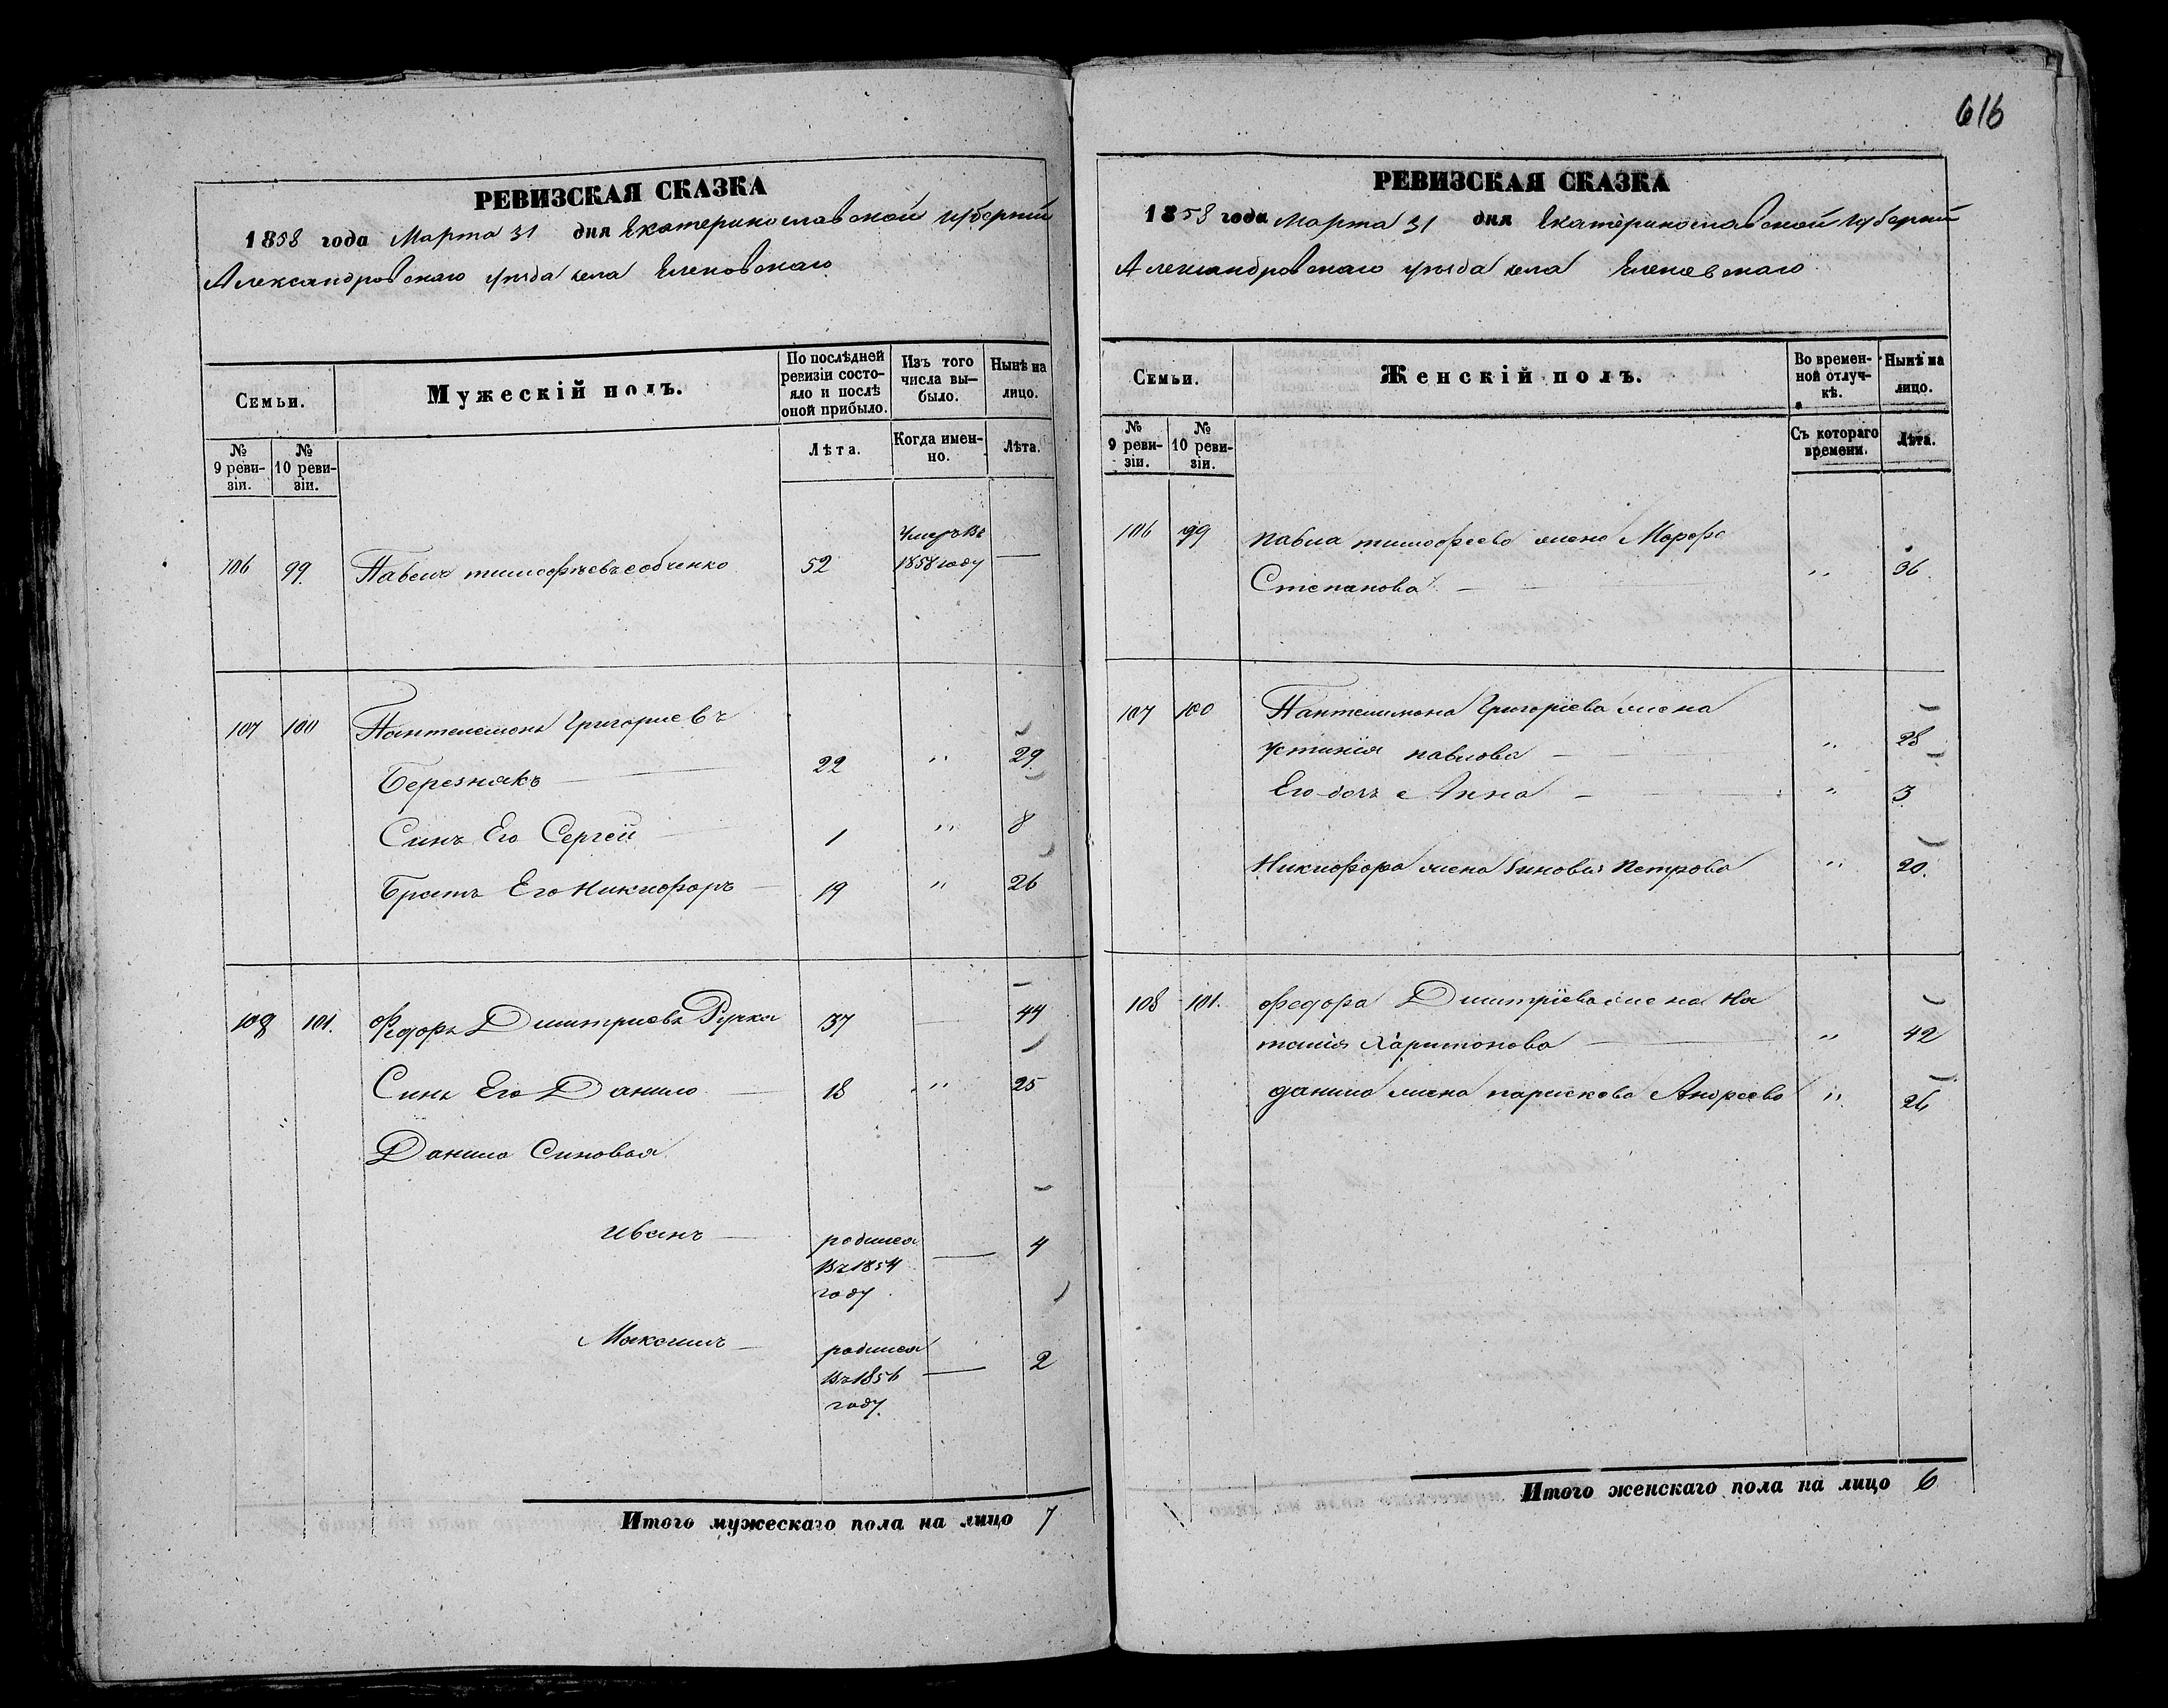 РЕВИЗСКАЯ СКАЗКА
1858 года Марта 31 дня Екатеринославской губернии
Александровскаго уезда села Еленовскаго
Семьи.
Мужескій полъ.
По послѣдней ревизіи состояло и послѣ оной прибыло.
Изъ того числа выбыло.
Нынѣ на лицо.
№ 9 ревизіи.
№ 10 ревизіи.
Лѣта.
Когда именно.
Лѣта.
106 99 Павелъ тимофѣевъ собченко 52 Умеръ въ 1858 году —
107 100 Пантелемонъ Григориевъ
Березнякъ — 22 " 29
Синъ Его Сергей — 1 " 8
Братъ Его Никифоръ — 19 " 26
108 101. Федоръ Дмитриевъ Ручка 37 — 44
Синъ Его Данило — 18 " 25
Данила Синовья
Иванъ — родился въ 1854 году — 4
Максимъ — родился въ 1856 году — 2
Итого мужескаго пола на лицо 7
616
РЕВИЗСКАЯ СКАЗКА
1858 года Марта 31 дня Екатеринославской губернии
Александровскаго уезда села Еленовскаго
Семьи.
Женскій полъ.
Во временной отлучкѣ.
Нынѣ на лицо.
№ 9 ревизіи.
№ 10 ревизіи.
Съ котораго времени.
Лѣта.
106 99 Павла тимофеева жена Марфа
Степанова — " 36
107 100 Пантелимона Григоріева жена
устинія павлова — " 28
Его дочь Анна — " 3
Никифора жена Зиновія Петрова " 20
108 101. федора Дмитріева жена На
талія Харитонова — " 42
данила жена парискева Андреева " 26
Итого женскаго пола на лицо 6